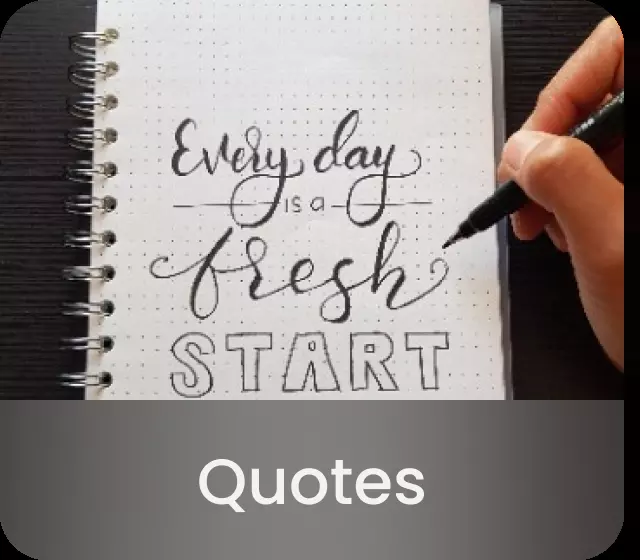 Every day
is a
fresh
START
Quotes